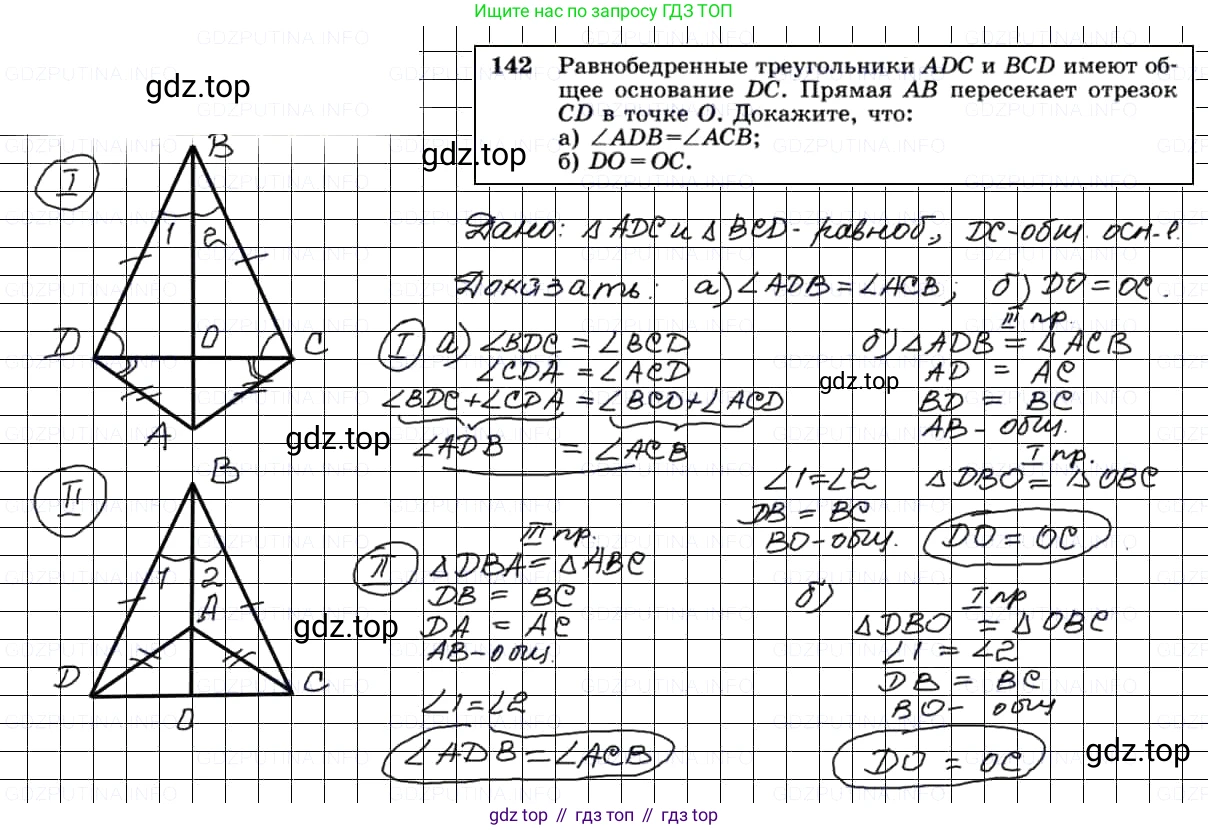 Ищите нас по запросу ГДЗ ТОП
142 Равнобедренные треугольники ADC и BCD имеют об-
щее основание DC. Прямая AB пересекает отрезок
CD в точке O. Докажите, что:
а) ∠ADB=∠ACB;
б) DO=OC.
gdz.top
gdz.top
I
B
1 2
D
O
C
A
Дано: △ADC и △BCD - равноб, DC-общ. осн-е.
Доказать: а) ∠ADB = ∠ACB; б) DO = OC.
I а) ∠BDC = ∠BCD
∠CDA = ∠ACD
∠BDC+∠CDA = ∠BCD+∠ACD
∠ADB = ∠ACB
gdz.top
III пр.
б) △ADB = △ACB
AD = AC
gdz.top
BD = BC
AB - общ.
I пр.
∠1=∠2 △DBO = △OBC
DB = BC
BO-общ. DO = OC.
II
B
1 2
A
D
C
O
gdz.top
III пр.
II △DBA = △ABC
DB = BC
DA = AC
AB-общ.
∠1=∠2
∠ADB = ∠ACB
б) I пр
△DBO = △OBC
∠1 = ∠2
DB = BC
BO- общ
DO = OC
gdz.top
gdz top // гдз топ // gdz top